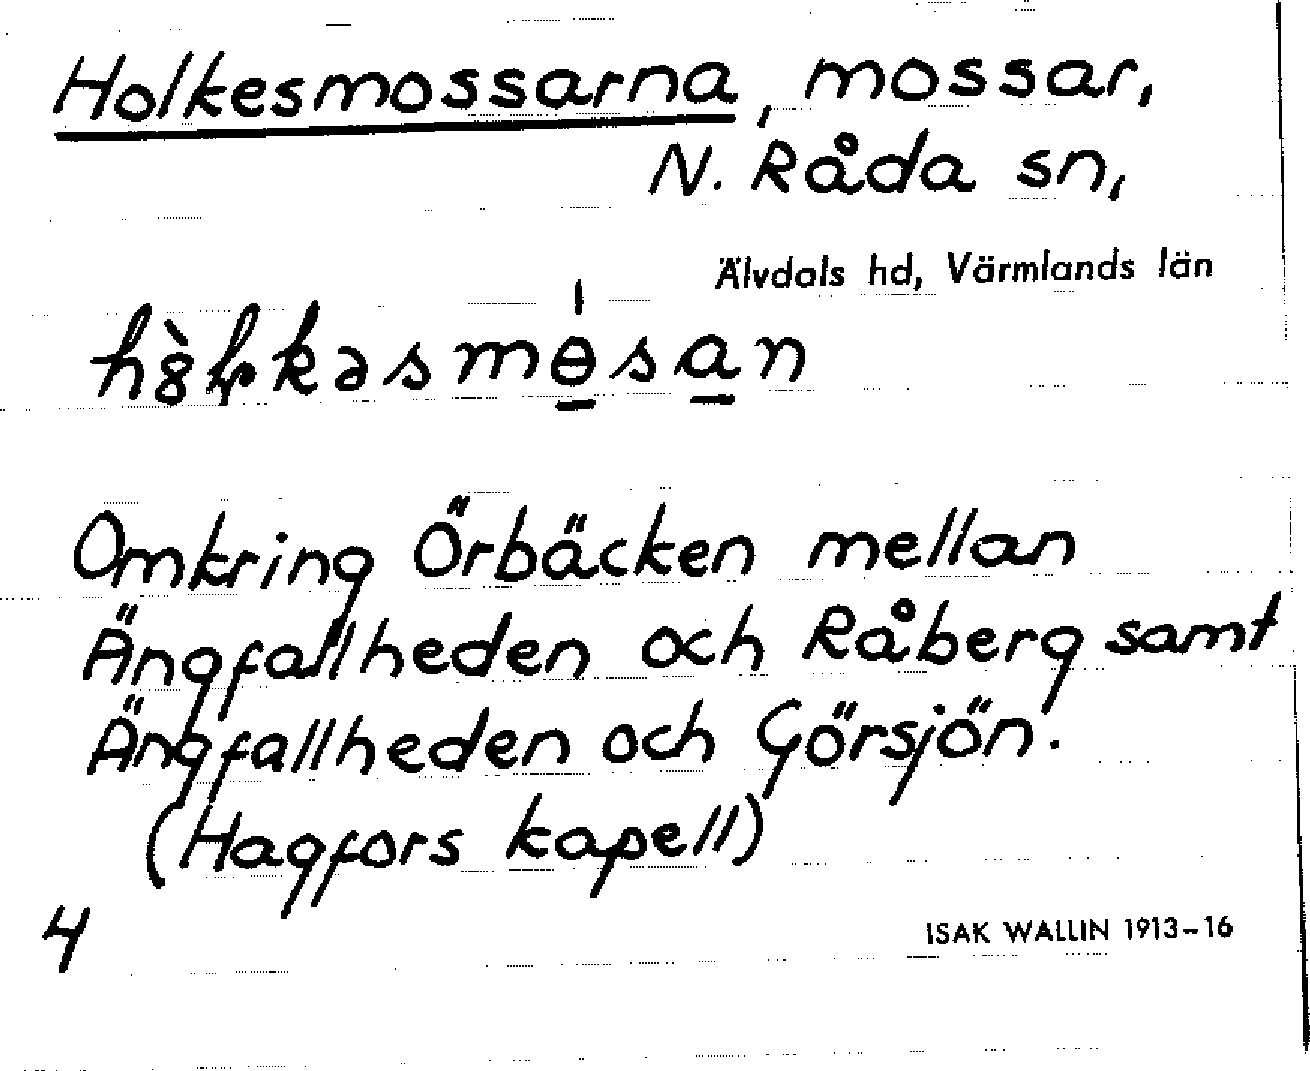 Holkesmossarna, mossar,
N. Råda sn,
Älvdals hd, Värmlands län
Omkring Örbäcken mellan
Ängfallheden och Råberg samt
Ängfallheden och Görsjön.
(Hagfors kapell)
4
ISAK WALLIN 1913-16